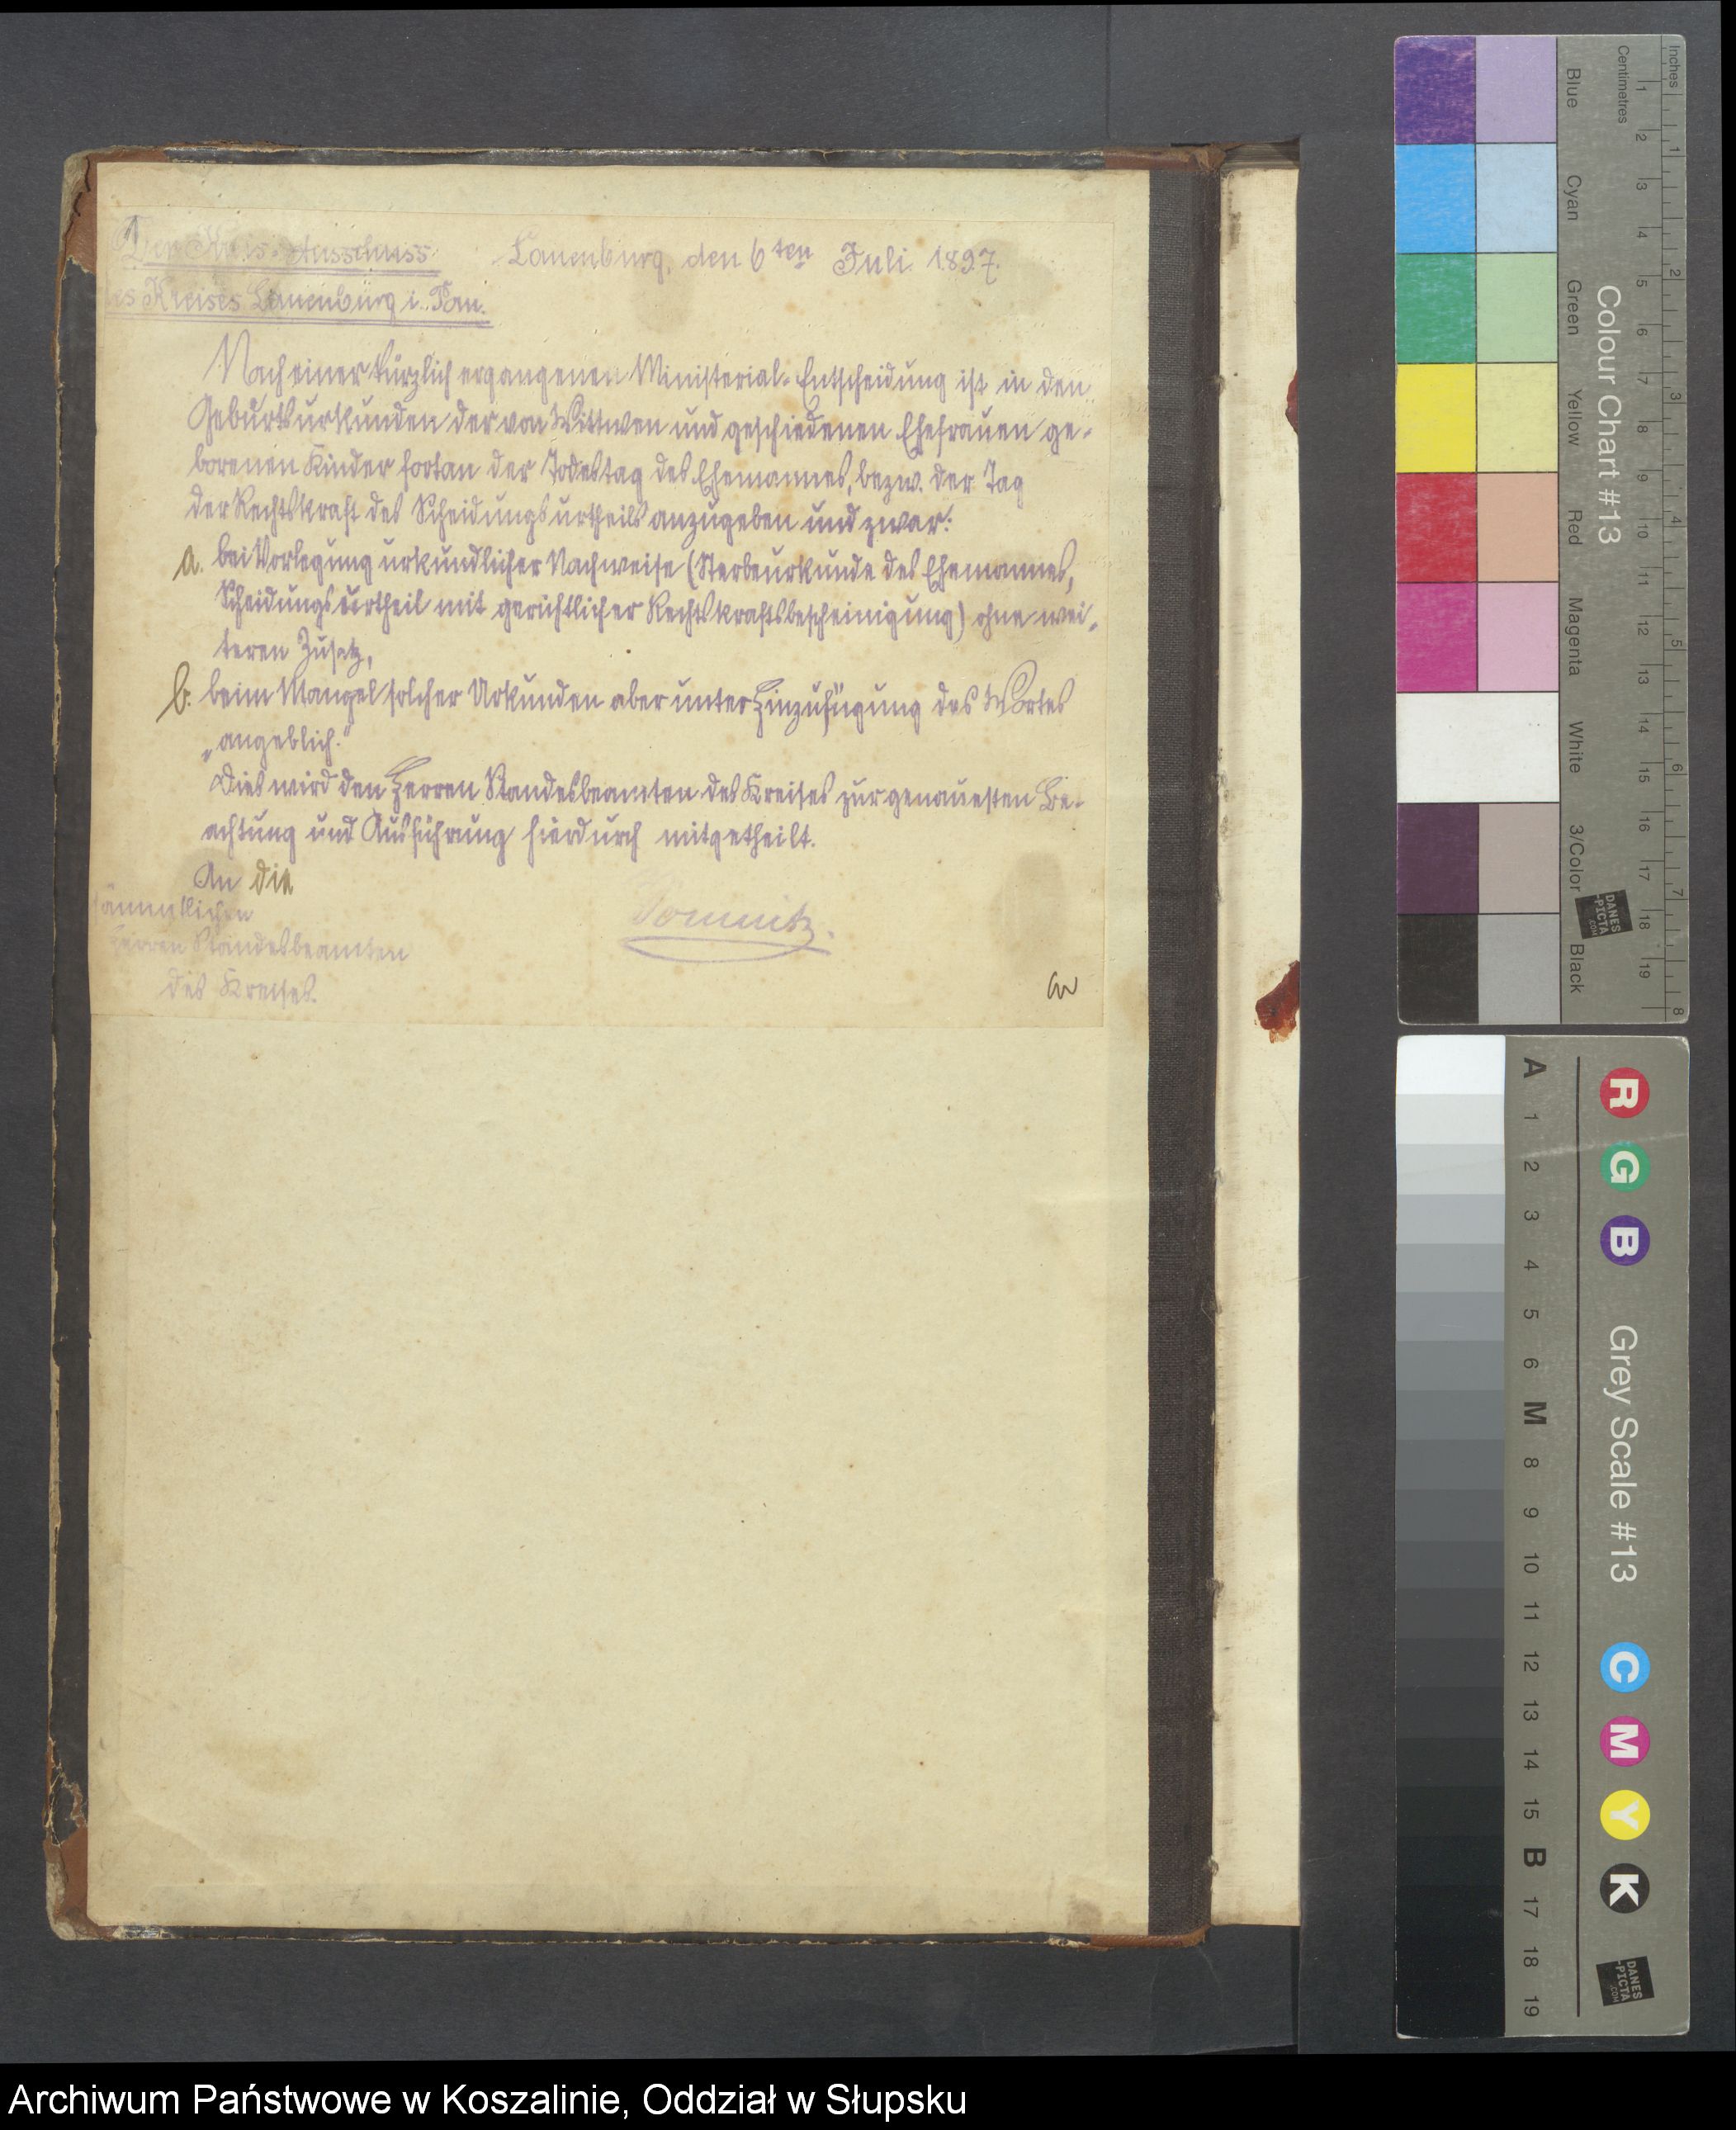 Der Kreis-Ausschuss
des Kreises Lauenburg i. Pom.
Lauenburg, den 6ten Juli 1897.
Nach einer kürzlich ergangenen Ministerial-Entscheidung ist in den
Geburtsurkunden der von Wittwen und geschiedenen Ehefrauen ge-
borenen Kinder fortan der Todestag des Ehemannes, bezw. der Tag
der Rechtskraft des Scheidungsurtheils anzugeben und zwar:
a. bei Vorlegung urkundlicher Nachweise (Sterbeurkunde des Ehemannes,
Scheidungsurtheil mit gerichtlicher Rechtskraftsbescheinigung) ohne wei-
teren Zusatz,
b. beim Mangel solcher Urkunden aber unter Hinzufügung des Wortes
„angeblich."
Dies wird den Herren Standesbeamten des Kreises zur genauesten Be-
achtung und Ausführung hierdurch mitgetheilt.
An die
sämmtlichen
Herren Standesbeamten
des Kreises.
Inches
Centimetres
1 2 3 4 5 6 7 8 9 10 11 12 13 14 15 16 17 18 19
1 2 3 4 5 6 7 8
Colour Chart #13
Blue
Cyan
Green
Yellow
Red
Magenta
White
3/Color
Black
DANES
-PICTA
.COM
Grey Scale #13
R G B C M Y K
A 1 2 3 4 5 6 M 8 9 10 11 12 13 14 15 B 17 18 19
DANES
-PICTA
.COM
Archiwum Państwowe w Koszalinie, Oddział w Słupsku